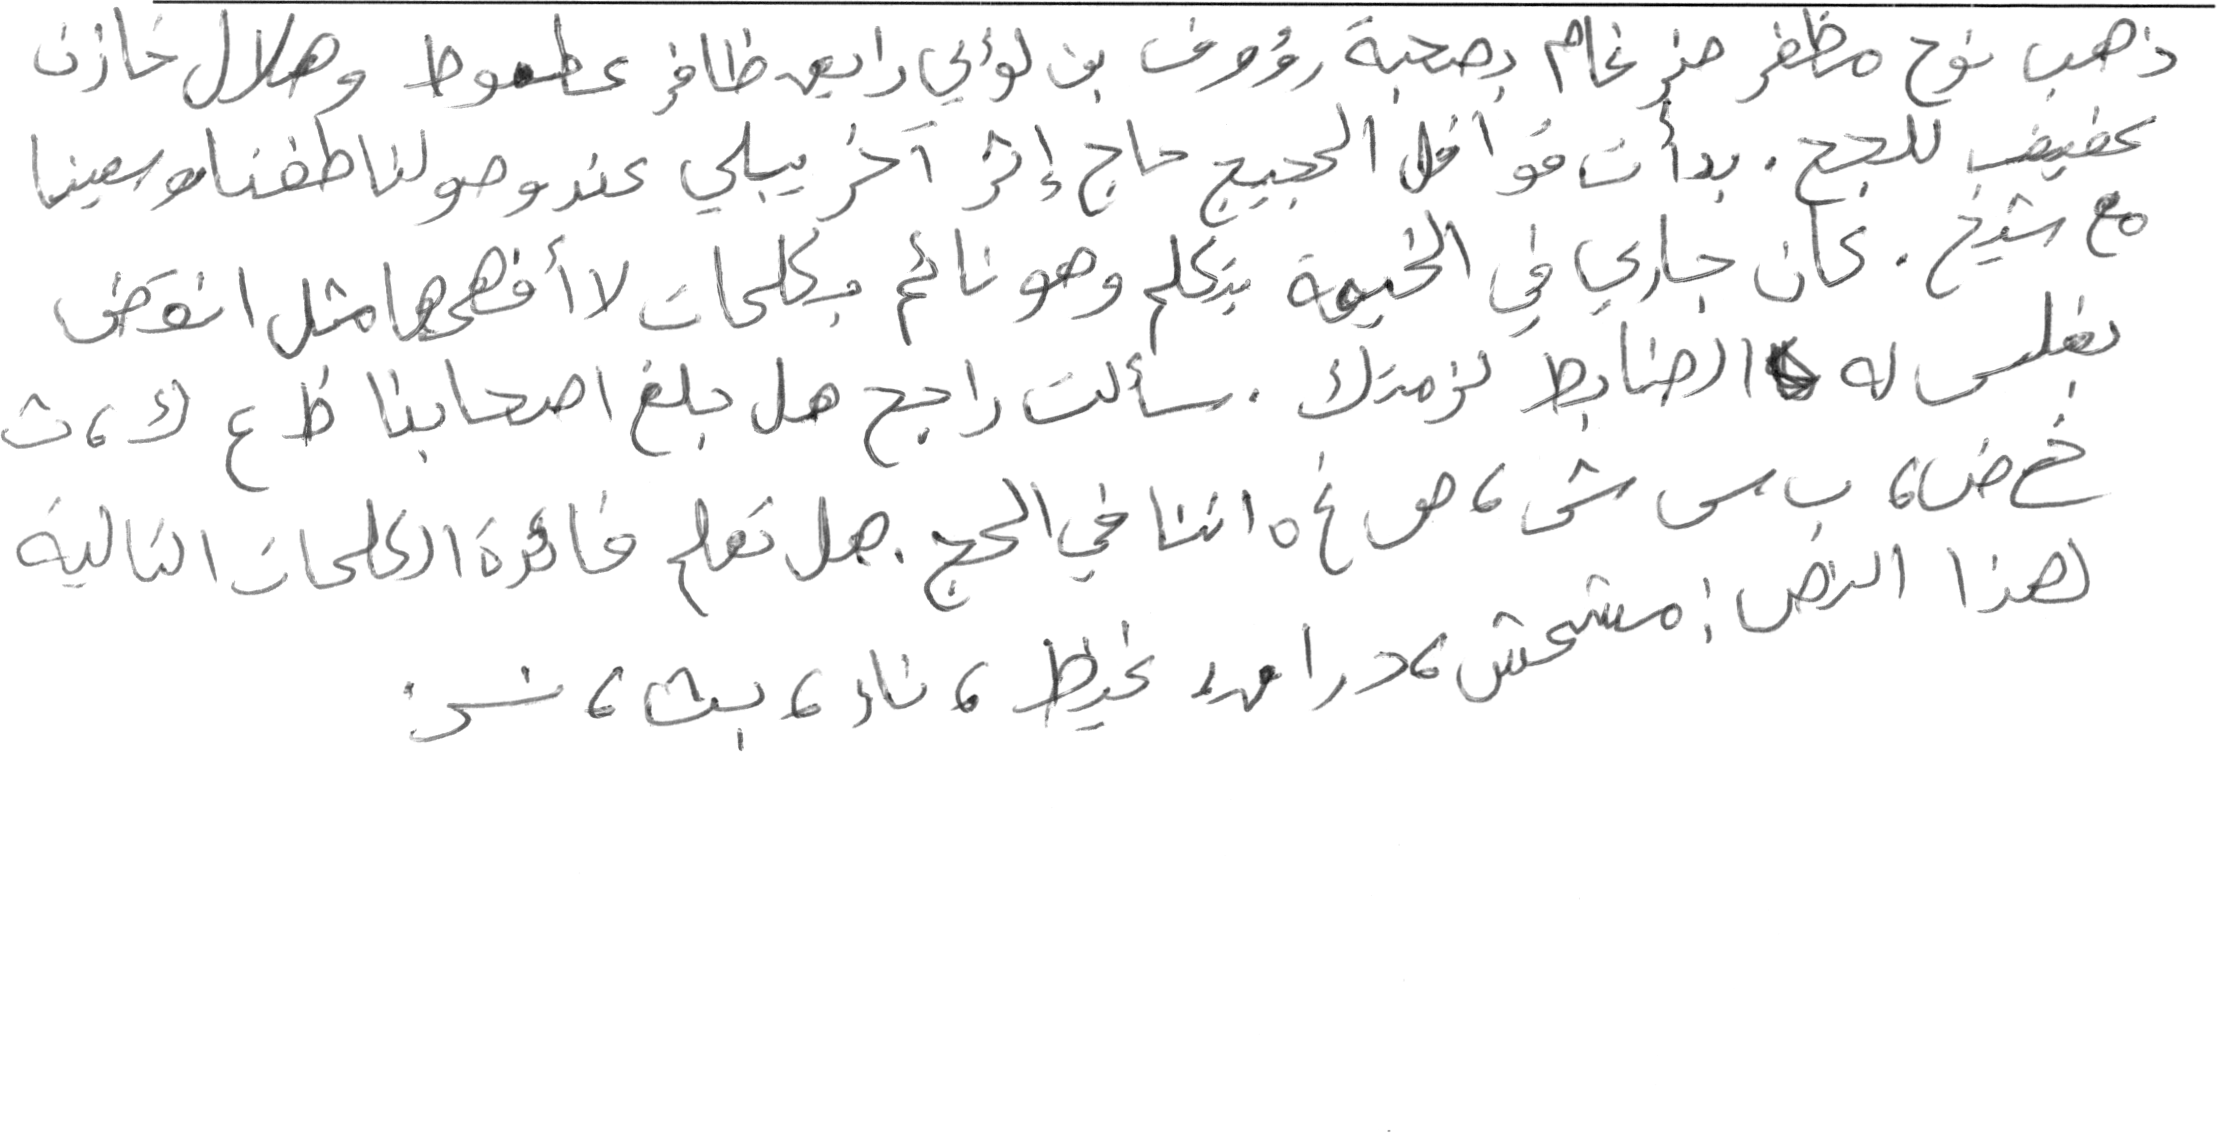 ذهب نوح مظفر ضرغام بصحبة رؤوف بن لؤي رايع ظافر عطعوط وهلال خازن
عفيفب للحج . بدأت قوافل الحجيج حاج إثر آخر يبلي عند وصولنا طفنا وسعينا
مع شيخ . كان جاري في الخيمة يتكلم وهو نائم بكلمات لا أفهمها مثل انقض
تغلس له الضابط لزمتك . سألت راجح هل بلغ اصحابنا ظ ع ك ، ث
خ ض ، ب س ش ، ص غ ه اننا في الحج . هل تعلم فائدة الكلمات التالية
لهذا النص : مشمش ، درامه غيظ ، ناد ، بث ، نس .